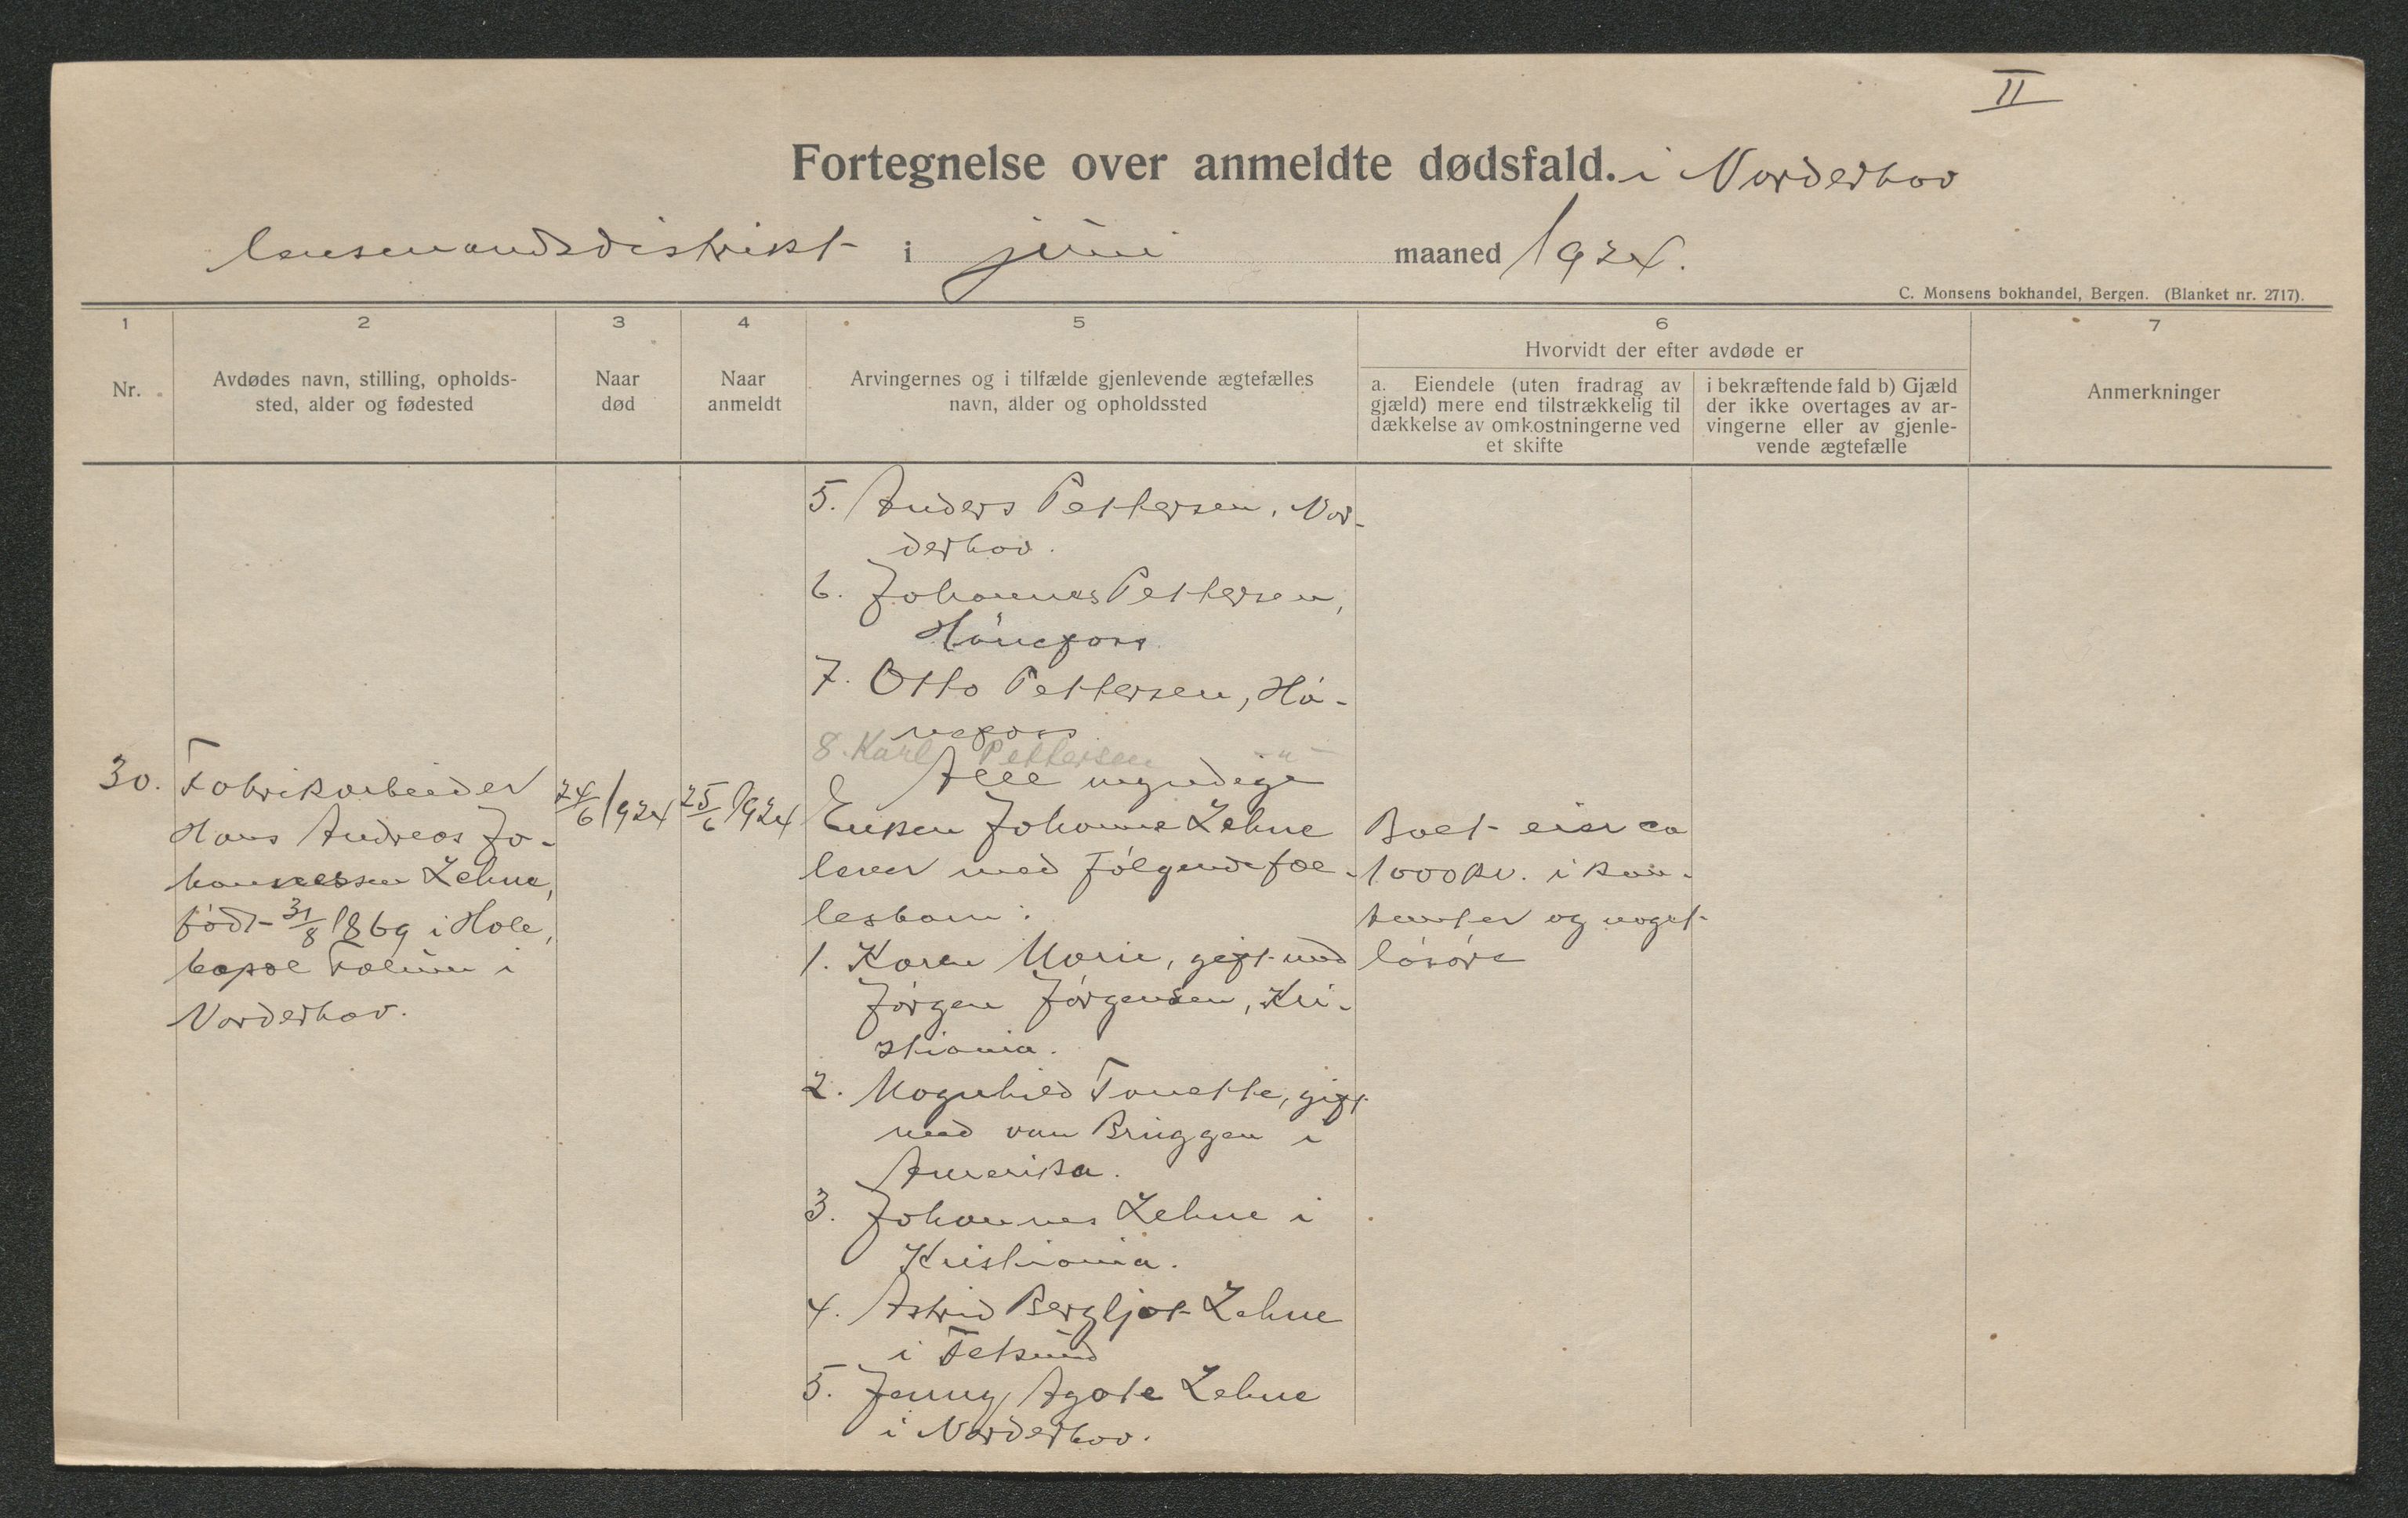 II
Fortegnelse over anmeldte dødsfald. i Norderhov
lensmandsdistrikt i juni maaned 1924.
C. Monsens bokhandel, Bergen. (Blanket nr. 2717).
1 2 3 4 5 6 7
Nr.
Avdødes navn, stilling, opholds-
sted, alder og fødested
Naar
død
Naar
anmeldt
Arvingernes og i tilfælde gjenlevende ægtefælles
navn, alder og opholdssted
Hvorvidt der efter avdøde er
a. Eiendele (uten fradrag av
gjæld) mere end tilstrækkelig til
dækkelse av omkostningerne ved
et skifte
i bekræftende fald b) Gjæld
der ikke overtages av ar-
vingerne eller av gjenle-
vende ægtefælle
Anmerkninger
5. Anders Pettersen, Nor-
derhov.
6. Johannes Pettersen,
Hönefoss
7. Otto Pettersen, Hö-
nefoss
8. Karl Pettersen -"-
Alle myndige
30.
Fabrikarbeider
Hans Andreas Jo-
hannessen Lehne,
född 31/8 1869 i Hole,
bopæl Follum i
Norderhov.
24/6 1924
25/6 1924
Enken Johanne Lehne
lever med følgende fæl-
lesbarn:
1. Karen Marie, gift med
Jörgen Jörgensen, Kri-
stiania.
2. Magnhild Tonette, gift
med van Bruggen i
Amerika.
3. Johannes Lehne i
Kristiania.
4. Astrid Bergljot Lehne
i Fetsund
5. Jenny Agate Lehne
i Norderhov.
Boet eier ca
1000 kr. i kon-
tanter og noget
lösöre